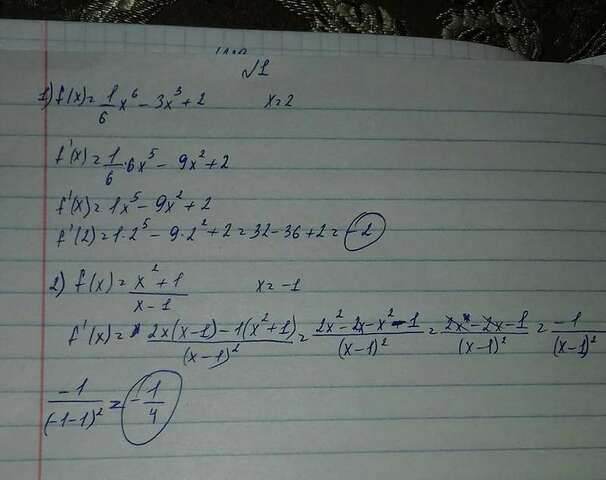 №1
1) f(x) = 1/6 x⁶ - 3x³ + 2 x = 2
f'(x) = 1/6 · 6x⁵ - 9x² + 2
f'(x) = 1x⁵ - 9x² + 2
f'(2) = 1·2⁵ - 9·2² + 2 = 32 - 36 + 2 = -2
2) f(x) = (x² + 1)/(x - 1) x = -1
f'(x) = (2x(x-1) - 1(x²+1))/(x-1)² = (2x² - 2x - x² - 1)/(x-1)² = (2x - 2x - 1)/(x-1)² = -1/(x-1)²
-1/(-1-1)² = -1/4